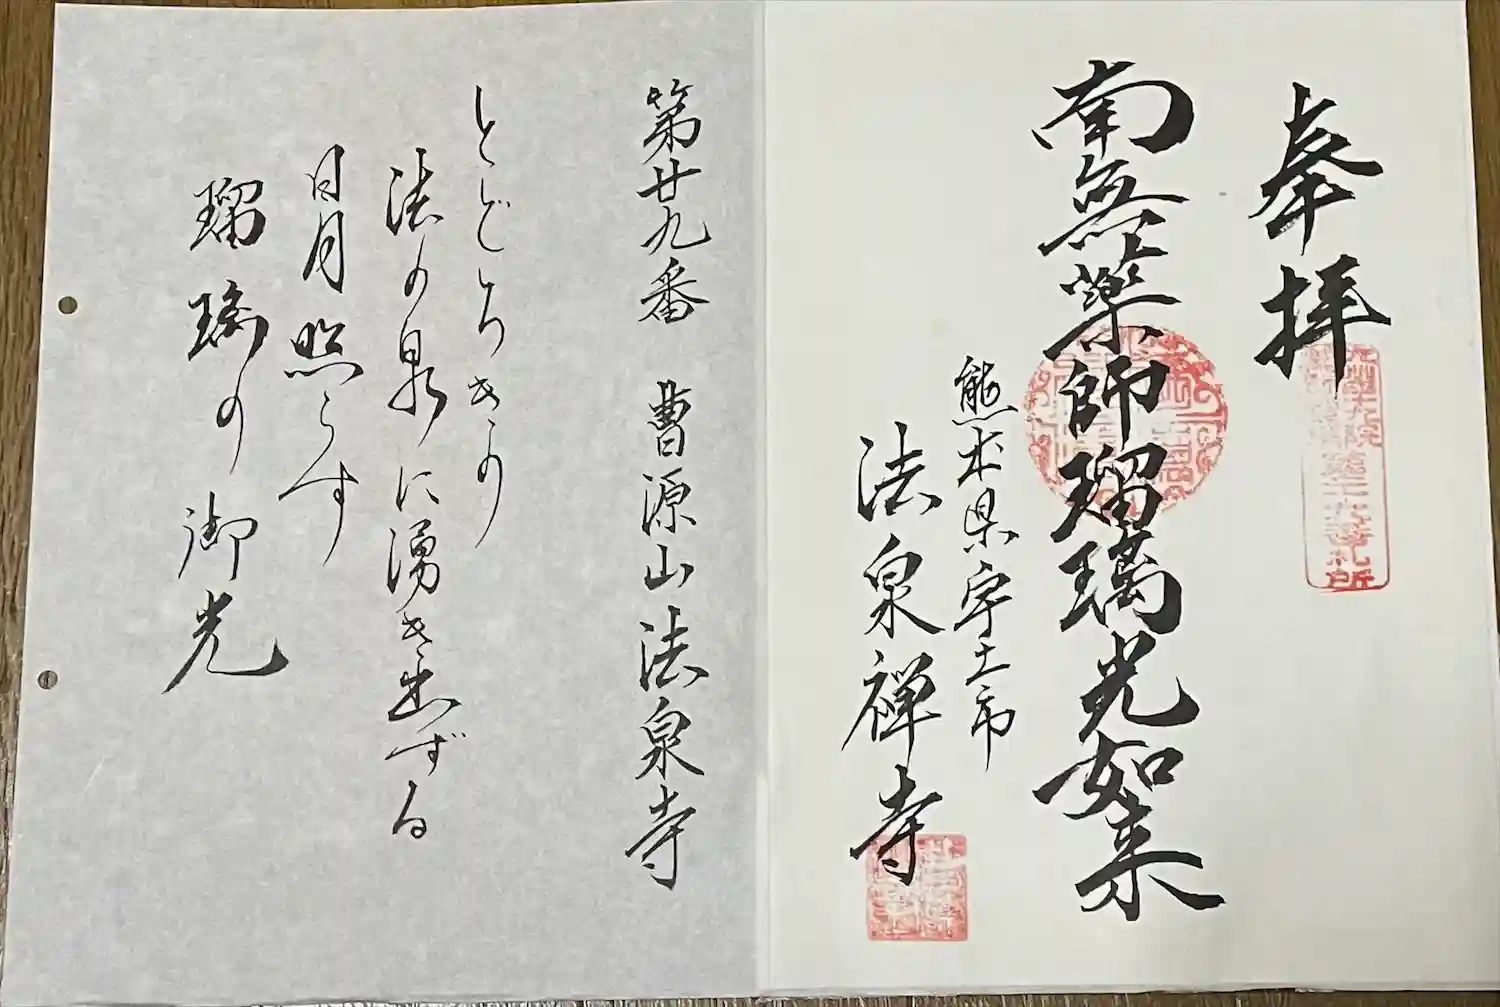 奉拝
南無薬師瑠璃光如来
熊本県宇土市
法泉禅寺
第廿九番 曹源山法泉寺
とどろきの
法の泉に湧き出ずる
日月照らす
瑠璃の御光